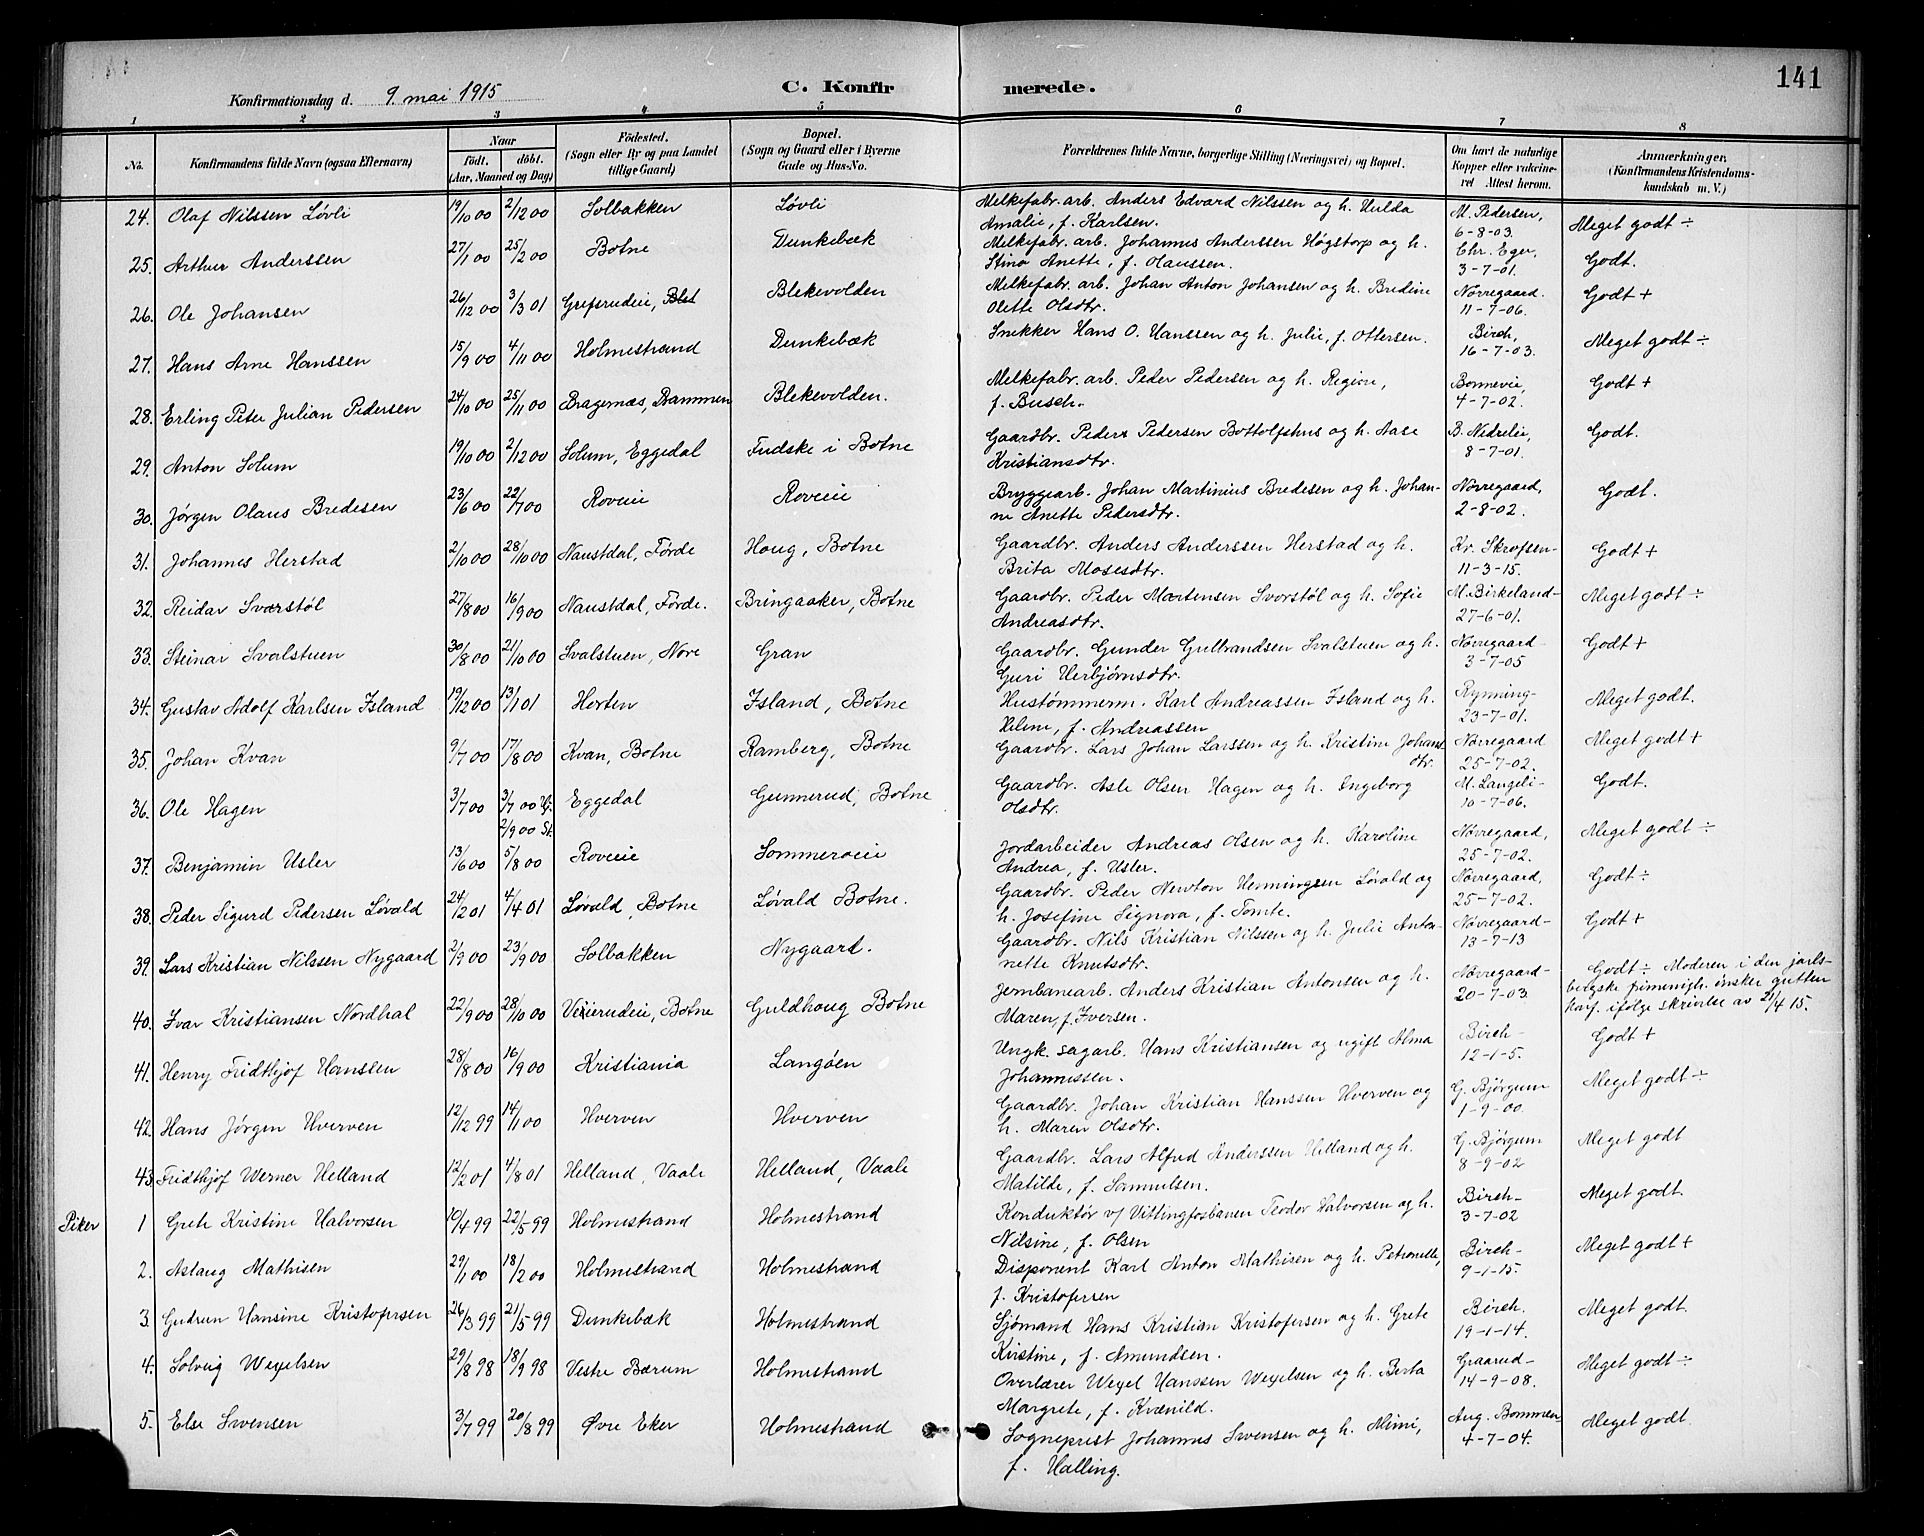 141
Konfirmationsdag d. 9. mai 1915 C. Konfirmerede.
1 2 3 4 5 6 7 8
No. Konfirmandens fulde Navn (ogsaa Efternavn) Naar født. døbt. (Aar, Maaned og Dag) Fødested. (Sogn eller By og paa Landet tillige Gaard) Bopæl. (Sogn og Gaard eller i Byerne Gade og Hus-No. Forældrenes fulde Navne, borgerlige Stilling (Næringsvei) og Bopæl. Om havt de naturlige Kopper eller vakcineret Attest herom. Anmærkninger. (Konfirmandens Kristendomskundskab m. V.)
24. Olaf Nilssen Løvli 19/10 00 2/12 00 Solbakken Løvli Melkefabr. arb. Anders Edvard Nilssen og h. Hulda M. Pedersen, Meget godt ÷
Amalie, f. Karlsen. 6-8-03.
25. Arthur Anderssen 27/1 00 25/2 00 Botne Dunkebæk Melkefabr. arb. Johannes Anderssen Høgstorp og h. Chr. Eger, Godt.
Stina Anette, f. Olaussen. 3-7-01.
26. Ole Johansen 26/12 00 3/3 01 Blekevolden Melkefabr. arb. Johan Anton Johansen og h. Bredine Nørregaard. Godt +
Olette Olsdtr. 11-7-06.
27. Hans Arne Hanssen 15/9 00 4/11 00 Holmestrand Dunkebæk Snekker Hans O. Hanssen og h. Julie, f. Ottersen. Birch, Meget godt ÷
16-7-03.
28. Erling Peter Julian Pedersen 24/10 00 25/11 00 Bragernæs, Drammen Blekevolden. Melkefabr. arb. Peder Pedersen og h. Regine, Bonnevie, Godt +
f. Busch. 4-7-02.
29. Anton Solum 19/10 00 2/12 00 Solum, Eggedal Fudske i Botne Gaardbr. Peder Pedersen Bottolfshus og h. Aase B. Nedrelie, Godt.
Kristiansdtr. 8-7-01.
30. Jørgen Olaus Bredesen 23/6 00 22/7 00 Roveie Roveie Bryggearb. Johan Martinius Bredesen og h. Johan- Nørregaard, Godt.
ne Anette Pedersdtr. 2-8-02.
31. Johannes Herstad 2/10 00 28/10 00 Naustdal, Førde Houg, Botne Gaardbr. Anders Anderssen Herstad og h. Kr. Godt +
Brita Mosesdtr. 11-3-15.
32. Reidar Sværstøl 27/8 00 16/9 00 Naustdal, Førde. Bringaaker, Botne Gaardbr. Peder Martensen Svorstøl og h. Sofie M. Birkeland- Meget godt ÷
Andreasdtr. 27-6-01.
33. Steinar Svalstuen 30/8 00 21/10 00 Svalstuen, Nore Gran Gaardbr. Gunder Gulbrandsen Svalstuen og h. Nørregaard- Godt +
Guri Herbjørnsdtr. 3-7-05
34. Gustav Adolf Karlsen Island 19/12 00 13/1 01 Horten Island, Botne Hustømmerm. Karl Andreassen Island og h. Rynning- Meget godt.
Helene, f. Andreassen 23-7-01.
35. Johan Kvan 9/7 00 17/8 00 Kvan, Botne Ramberg, Botne Gaardbr. Lars Johan Larssen og h. Kristine Johans Nørregaard Meget godt +
dtr. 25-7-02.
36. Ole Hagen 3/7 00 3/7 00 Hj. Eggedal Gunnerud, Botne Gaardbr. Asle Olsen Hagen og h. Ingeborg M. Langeli- Godt.
2/9 00 St. Olsdtr. 10-7-06.
37. Benjamin Usler 13/6 00 5/8 00 Roveie Sommerveie Jordarbeider Andreas Olsen og h. Karoline Nørregaard, Meget godt ÷
Andrea, f. Usler. 25-7-02.
38. Peder Sigurd Pedersen Løvald 24/2 01 4/4 01 Løvald, Botne Løvald Botne. Gaardbr. Peder Newton Henningsen Løvald og Nørregaard, Godt ÷
h. Josefine Signora, f. Tomte. 25-7-02.
39. Lars Kristian Nilssen Nygaard 2/9 00 23/9 00 Solbakken Nygaard. Gaardbr. Nils Kristian Nilssen og h. Julie Anton- Nørregaard- Godt +
nette Knutsdtr. 13-7-13
40. Ivar Kristiansen Nordhal 22/9 00 28/10 00 Veierudeie, Botne Guldhoug Botne Jernbanearb. Anders Kristian Antonsen og h. Nørregaard- Godt ÷ Moderen i den jarls-
Maren, f. Iversen. 20-7-03. bergske frimenigh. ønsker gutten
konf. ifølge skrivelse av 21/4 15.
41. Henry Fridthjof Hanssen 28/8 00 16/9 00 Kristiania Langøen Ungk. sagarb. Hans Kristiansen og ugift Alma Birch- Godt +
Johannessen. 12-1-5.
42. Hans Jørgen Hverven 12/12 99 14/1 00 Hverven Hverven Gaardbr. Johan Kristian Hanssen Hverven og G. Bjørgum Meget godt ÷
h. Maren Olsdtr. 1-9-00.
43. Fridthjof Werner Helland 12/2 01 4/8 01 Helland, Vaale Helland, Vaale Gaardbr. Lars Alfred Anderssen Helland og h. G. Bjørgum Meget godt
Matilde, f. Samuelsen. 8-9-02
Piker 1 Grete Kristine Halvorsen 10/4 99 22/5 99 Holmestrand Holmestrand Konduktør v/ Vittingfosbanen Teodor Halvorsen og h. Birch- Meget godt.
Nilsine, f. Olsen 3-7-02
2. Aslaug Mathisen 29/1 00 18/2 00 Holmestrand Holmestrand Disponent Karl Anton Mathisen og h. Petronelle, Birch- Meget godt +
f. Kristofersen 9-1-15.
3. Gudrun Hansine Kristofersen 26/3 99 21/5 99 Dunkebæk Holmestrand Sjømand Hans Kristian Kristofersen og h. Grete Birch. Meget godt.
Kristine, f. Amundsen. 19-1-14.
4. Solveig Wexelsen 29/8 98 18/9 98 Vestre Bærum Holmestrand Overlærer Wexel Hanssen Wexelsen og h. Berta Graarud- Meget godt ÷
Margrete, f. Kvænild. 14-9-08.
5. Else Svensen 3/7 99 20/8 99 Øvre Eker Holmestrand Sogneprest Johannes Svensen og h. Mimi, Aug. Bommen Meget godt.
f. Halling. 4-7-04.